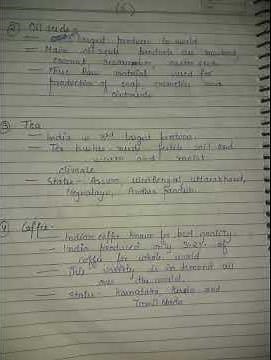 (5)
2) Oil seeds
— largest producer in world
— Main oil seeds produced are mustard
coconut, seasamum,
— These Raw material used for
production of soap, cosmetics and
ointments
3) Tea
— India is largest producer.
— Tea bushes needs fertile soil and
warm and moist
climate
— States - Assam, West Bengal, Uttarakhand,
Meghalaya, Andhra Pradesh.
4) Coffee -
— Indian coffee known for best quality.
— India produced only 3.2% of
coffee for whole world
— This variety is in demand all
over the world.
— States - Karnataka, Kerala and
Tamil Nadu